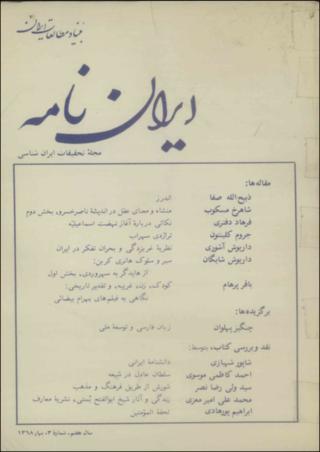 بنیاد مطالعات ایران
ایران نامه
مجلهٔ تحقیقات ایران شناسی
مقاله‌ها:
ذبیح‌الله صفا اندرز
شاهرخ مسکوب منشاء و معنای عقل در اندیشهٔ ناصرخسرو، بخش دوم
فرهاد دفتری نکاتی دربارهٔ آغاز نهضت اسماعیلیه
جروم کلینتون تراژدی سهراب
داریوش آشوری نظریهٔ غربزدگی و بحران تفکر در ایران
داریوش شایگان سیر و سلوک هانری کربن:
از هایدگر به سهروردی، بخش اول
باقر پرهام کودک، زن، غریبه، و تقدیر تاریخی:
نگاهی به فیلم‌های بهرام بیضائی
برگزیده‌ها:
چنگیز پهلوان زبان فارسی و توسعهٔ ملی
نقد و بررسی کتاب، بتوسط:
شاپور شهبازی دانشنامهٔ ایرانی
احمد کاظمی موسوی سلطان عادل در شیعه
سید ولی رضا نصر شورش از طریق فرهنگ و مذهب
محمد علی امیرمعزی زندگی و آثار شیخ ابوالفتح بُستی، نشریهٔ معارف
ابراهیم پورهادی تحفة المؤمنین
سال هفتم، شمارهٔ ۳، بهار ۱۳۶۸